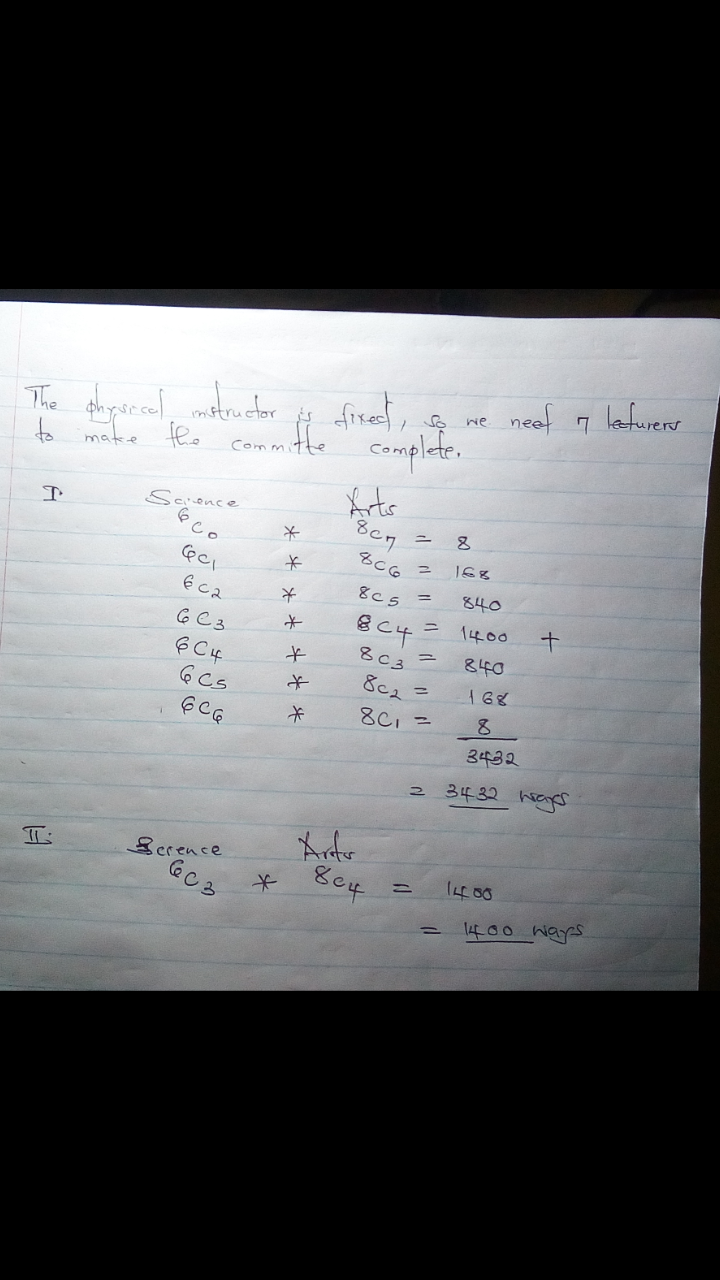 The physical instructor is fixed, so we need 7 lecturers
to make the committe complete.
I. Science Arts
6C0 * 8C7 = 8
6C1 * 8C6 = 168
6C2 * 8C5 = 840
6C3 * 8C4 = 1400 +
6C4 * 8C3 = 840
6C5 * 8C2 = 168
6C6 * 8C1 = 8
3432
= 3432 ways
II: Science Arts
6C3 * 8C4 = 1400
= 1400 ways